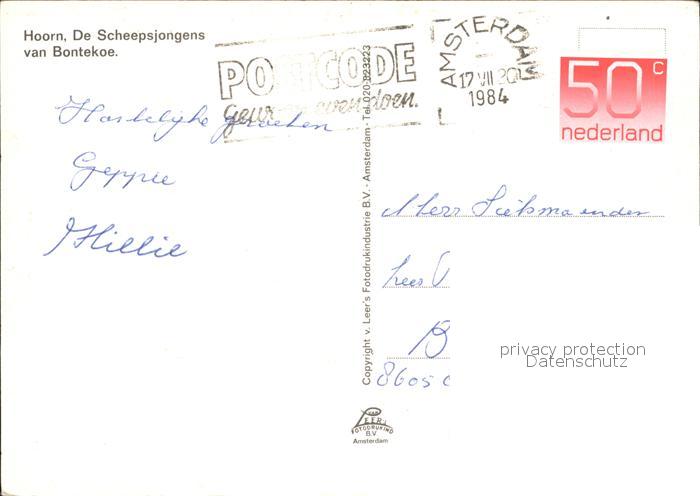 Hoorn, De Scheepsjongens
van Bontekoe.
POSTCODE
even doen.
AMSTERDAM
17 VII 20
1984
50 c
nederland
Hartelijke groeten
Geppie
Hillie
Copyright v. Leer's Fotodrukindustrie B.V. - Amsterdam - Tel. 020-823223
Mevr
B
8605
privacy protection
Datenschutz
VAN
LEER'S
FOTODRUKIND
B.V
Amsterdam